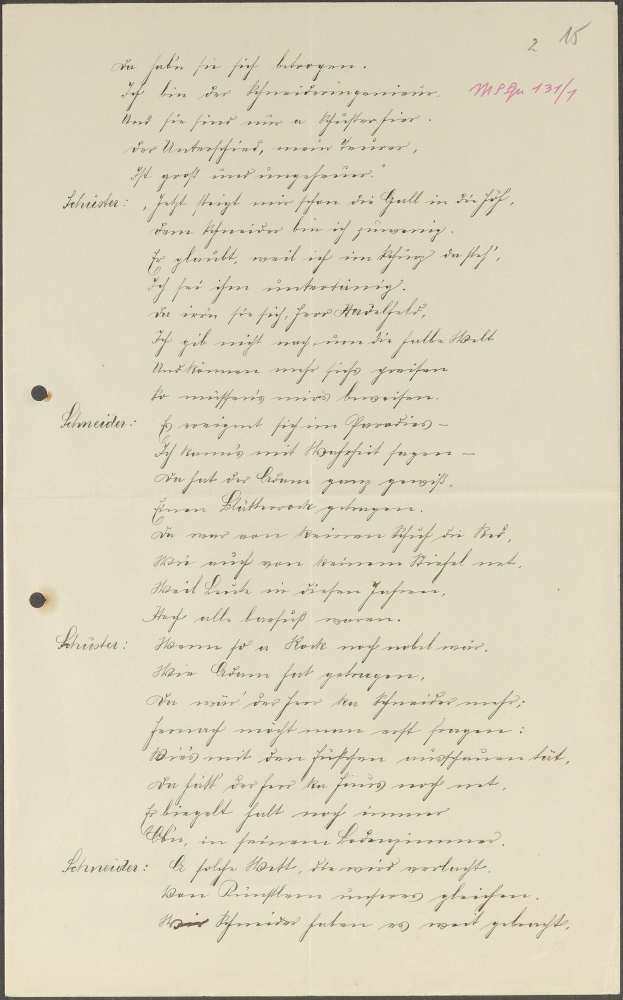 2 15
Da hab'n sie sich betrogen.
Ich bin der Schneideringenieur.
Und sie sind nur a Schuster hier.
Der Unterschied, mein Teurer,
Ist groß und ungeheuer."
Schuster: „Jetzt steigt mir schon die Gall in die Höh,
Dem Schneider bin ich zuwenig.
Er glaubt, weil ich im Schurz da steh',
Ich sei ihm untertänig.
Da irrn sie sich, Herr Nadelheld,
Ich gib nicht nach, um die halbe Welt
Und können mehr sichs preisen
So müssen's mirs beweisen.
Schneider: Es ereignet sich im Paradies –
Ich kann's mit Wahrheit sagen –
Da hat der Adam ganz gewiß,
Einen Blätterrock getragen.
Da war von keinem Schuh die Red,
Wie auch von keinem Stiefel net.
Weil Leute in diesen Jahren,
Noch alle barfuß waren.
Schuster: Wenn so a Rock noch nobel wär,
Wie Adam hat getragen,
Da wär' der Herr ka Schneider mehr;
Hernach möcht man erst fragen:
Wie's mit den Füßchen ausschauen tät,
Da hätt der Herr ka Haus noch net.
Er biegelt halt noch immer
Ob'n, in seinem Bodenzimmer.
Schneider: A solche Wett, die wird verlacht.
Von Künstlern unseres gleichen.
Wir Schneider haben es weit gebracht,